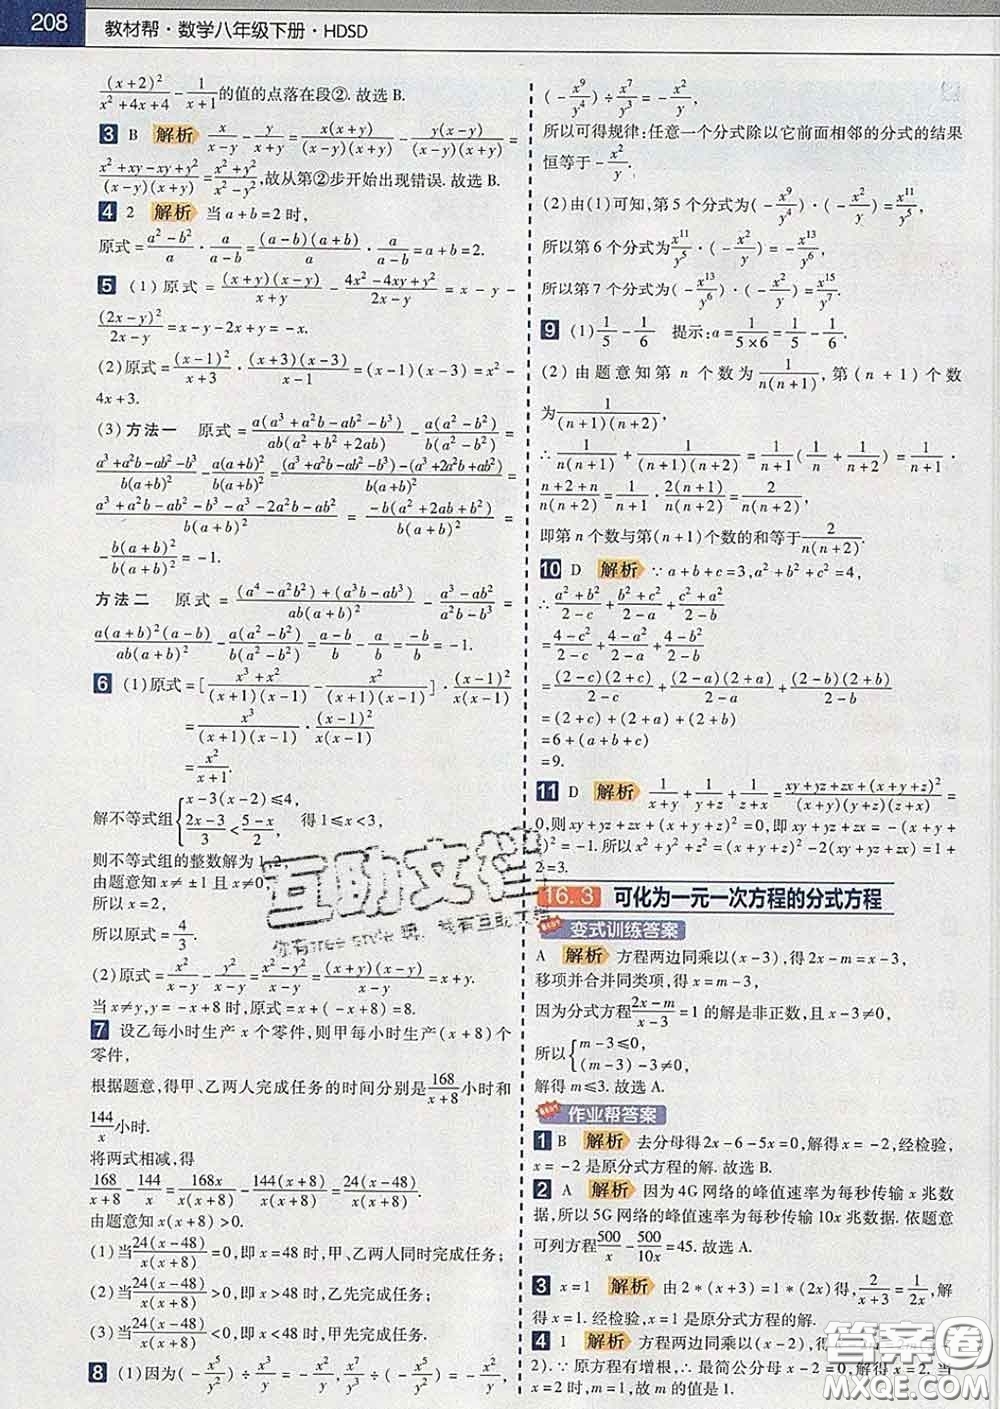 208 教材帮·数学八年级下册·HDSD
(x+2)²/(x²+4x+4) - 1/(x+1)的值的点落在段②.故选 B.
3 B 解析 x/(x-y) - y/(x+y) = x(x+y)/((x-y)(x+y)) - y(x-y)/((x-y)(x+y)) =
(x²+xy-xy+y²)/((x-y)(x+y)) = (x²+y²)/(x²-y²),故从第②步开始出现错误.故选 B.
4 2 解析 当 a+b=2 时,
原式 = (a²-b²)/a · a/(a-b) = (a-b)(a+b)/a · a/(a-b) = a+b=2.
5 (1)原式 = (x+y)(x-y)/(x+y) - (4x²-4xy+y²)/(2x-y) = x-y-
(2x-y)²/(2x-y) = x-y-2x+y = -x.
(2)原式 = (x-1)²/(x+3) · (x+3)(x-3)/(x-1) = (x-1)(x-3) = x²-
4x+3.
(3)方法一 原式 = a(a³+a²b-ab²-b³)/(ab(a²+b²+2ab)) - a(a²-b²)/(b(a²-b²)) =
(a³+a²b-ab²-b³)/(b(a+b)²) - a(a+b)²/(b(a+b)²) = ((a³+a²b-ab²-b³)-(a³+2a²b+ab²))/(b(a+b)²) =
(a³+a²b-ab²-b³-a³-2a²b-ab²)/(b(a+b)²) = -b(a²+2ab+b²)/(b(a+b)²) =
-b(a+b)²/(b(a+b)²) = -1.
方法二 原式 = ((a⁴-a²b²)+(a³b-ab³))/(ab(a+b)²) - (a³-ab²)/(a²b-b³) =
a(a+b)²(a-b)/(ab(a+b)²) - a(a²-b²)/(b(a²-b²)) = (a-b)/b - a/b = -b/b = -1.
6 (1)原式 = [(x³+x²)/((x+1)(x-1)) - x²/((x+1)(x-1))] · (x-1)²/(x(x-1))
= x³/((x+1)(x-1)) · (x-1)²/(x(x-1))
= x²/(x+1).
解不等式组{x-3(x-2)≤4, (2x-3)/3<(5-x)/2, 得 1≤x<3,
则不等式组的整数解为 1,2,
由题意知 x≠±1 且 x≠0,
所以 x=2,
所以原式 = 4/3.
(2)原式 = x²/(x-y) - y²/(x-y) = (x²-y²)/(x-y) = (x+y)(x-y)/(x-y) = x+y.
当 x≠y,y=-x+8 时,原式 = x+(-x+8)=8.
7 设乙每小时生产 x 个零件,则甲每小时生产(x+8)个
零件,
根据题意,得甲、乙两人完成任务的时间分别是168/(x+8)小时和
144/x小时.
将两式相减,得
168/(x+8) - 144/x = 168x/(x(x+8)) - 144(x+8)/(x(x+8)) = 24(x-48)/(x(x+8)).
由题意知 x(x+8)>0.
(1)当24(x-48)/(x(x+8))=0,即 x=48 时,甲、乙两人同时完成任务;
(2)当24(x-48)/(x(x+8))>0,即 x>48 时,乙先完成任务;
(3)当24(x-48)/(x(x+8))<0,即 x<48 时,甲先完成任务.
8 (1)因为(-x⁵/y²)÷x³/y=-x²/y,x⁷/y³÷(-x⁵/y²)=-x²/y,
(-x⁹/y⁴)÷x⁷/y³=-x²/y,
所以可得规律:任意一个分式除以它前面相邻的分式的结果
恒等于-x²/y.
(2)由(1)可知,第 5 个分式为(-x⁹/y⁴)·(-x²/y)=x¹¹/y⁵,
所以第 6 个分式为x¹¹/y⁵·(-x²/y)=-x¹³/y⁶,
所以第 7 个分式为(-x¹³/y⁶)·(-x²/y)=x¹⁵/y⁷.
9 (1)1/5-1/6 提示:a=1/(5×6)=1/5-1/6.
(2)由题意知第 n 个数为1/(n(n+1)),第(n+1)个数
为1/((n+1)(n+2)),
∴1/(n(n+1))+1/((n+1)(n+2))=1/(n+1)(1/n+1/(n+2))=1/(n+1)·
(n+2+n)/(n(n+2))=1/(n+1)·2(n+1)/(n(n+2))=2/(n(n+2)),
即第 n 个数与第(n+1)个数的和等于2/(n(n+2)).
10 D 解析 ∵a+b+c=3,a²+b²+c²=4,
∴(a²+b²)/(2-c)+(b²+c²)/(2-a)+(c²+a²)/(2-b)
=(4-c²)/(2-c)+(4-a²)/(2-a)+(4-b²)/(2-b)
=(2-c)(2+c)/(2-c)+(2-a)(2+a)/(2-a)+(2-b)(2+b)/(2-b)
=(2+c)+(2+a)+(2+b)
=6+3
=9.
11 D 解析 1/(x+y)+1/(y+z)+1/(z+x)=(xy+yz+zx+(x+y+z)²)/((x+y)(y+z)(z+x))=
0,则 xy+yz+zx+(x+y+z)²=0,即 xy+yz+zx=-(x+y+
z)²=-1.所以 x²+y²+z²=(x+y+z)²-2(xy+yz+zx)=1+
2=3.
16.3 可化为一元一次方程的分式方程
变式训练答案
A 解析 方程两边同乘以(x-3),得 2x-m=x-3,
移项并合并同类项,得 x=m-3,
因为分式方程(2x-m)/(x-3)=1 的解是非正数,且 x-3≠0,
所以{m-3≤0, (m-3)-3≠0,
解得 m≤3.故选 A.
作业帮答案
1 B 解析 去分母得 2x-6-5x=0,解得 x=-2,经检验,
x=-2 是原分式方程的解.故选 B.
2 A 解析 因为 4G 网络的峰值速率为每秒传输 x 兆数
据,所以 5G 网络的峰值速率为每秒传输 10x 兆数据.依题意
可列方程500/x-500/10x=45.故选 A.
3 x=1 解析 由 2*(x+3)=1*(2x)得,2/(x+3)=1/2x,解
得 x=1.经检验,x=1 是原分式方程的解.
4 1 解析 方程两边同乘以(x-2),得
2).∵原方程有增根,∴最简公分母 x-2=0,解得 x=2.当
x=2 时,m=1,故 m 的值是 1.
互助文档
你有free style 嘛，我有互助文档
答案圈
MXQE.COM